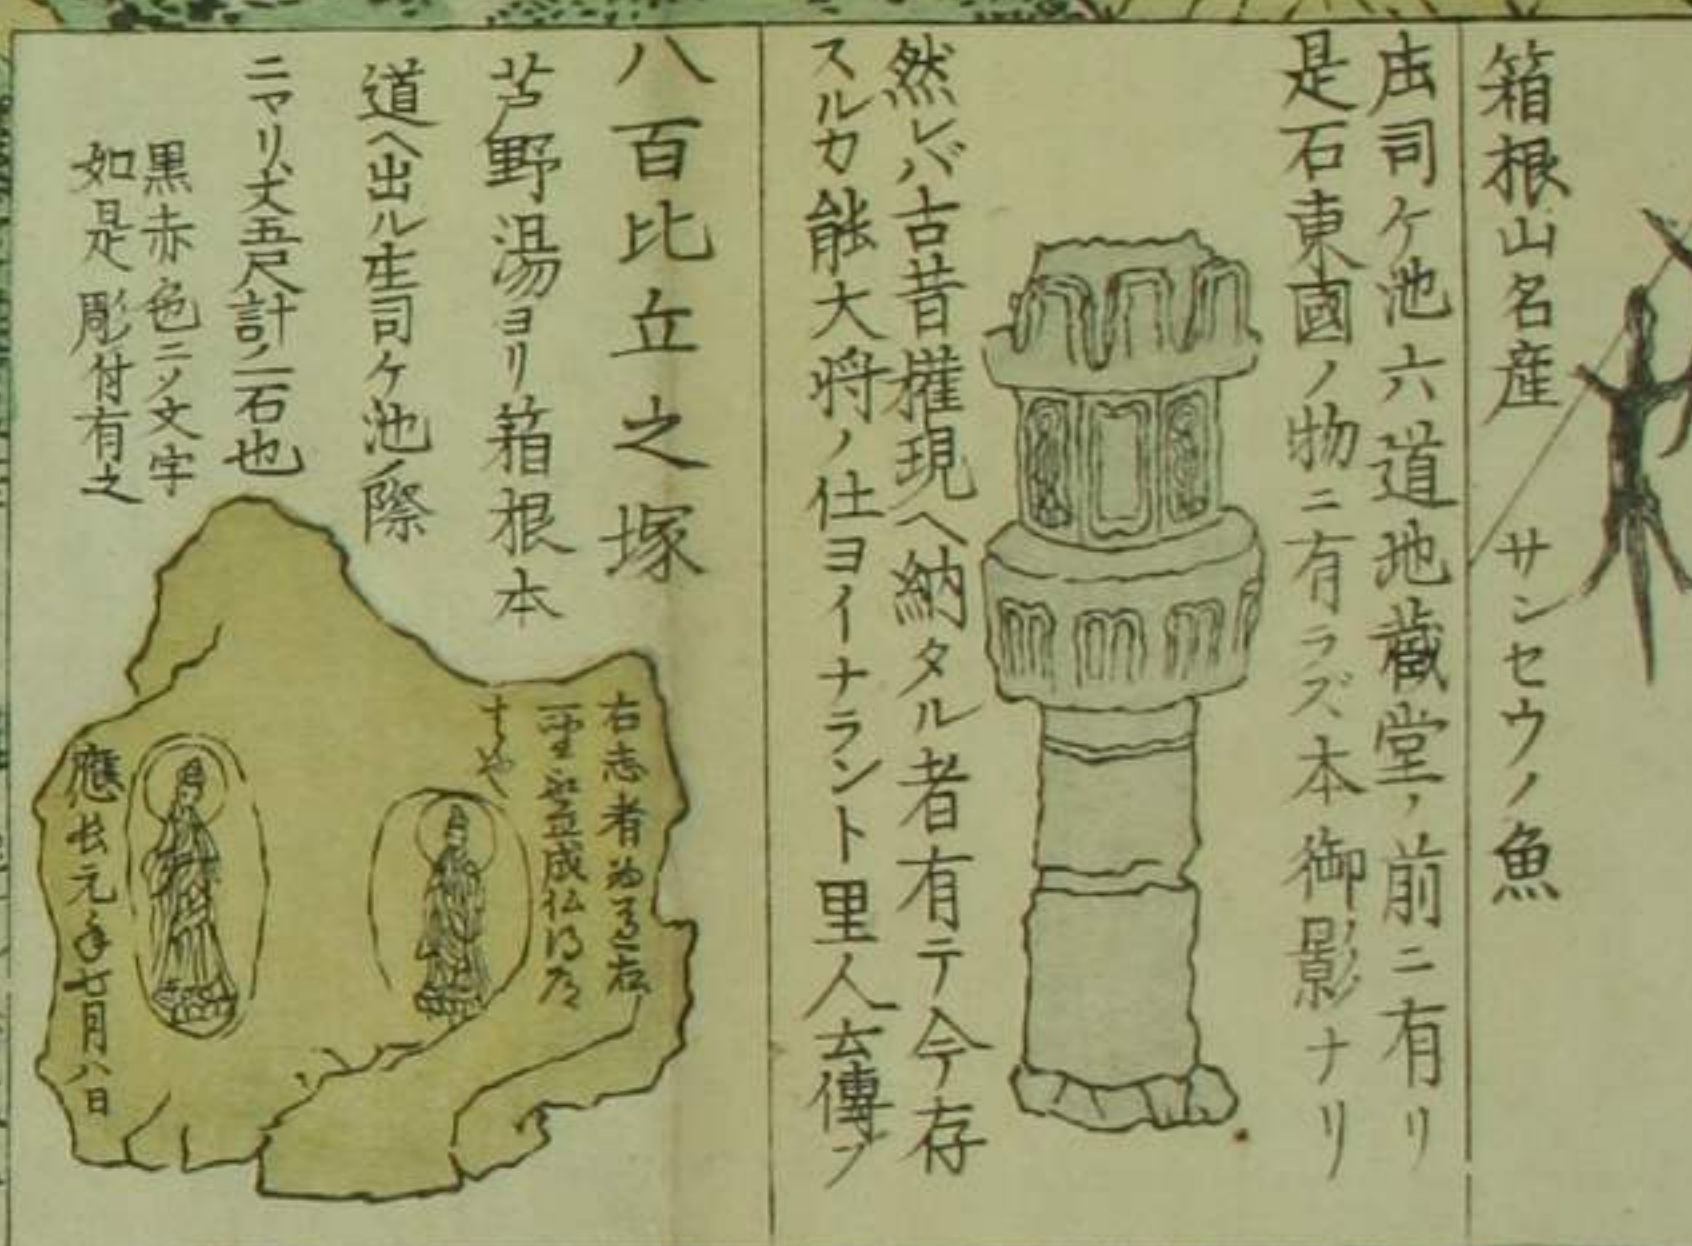 箱根山名産
サンセウノ魚
庄司ケ池六道地蔵堂ノ前ニ有リ
是石東國ノ物ニ有ラズ本御影ナリ
然レバ古昔権現ヘ納タル者有テ今存
スルカ能大将ノ仕ヨイナラント里人云傳フ
八百比丘之塚
芦野湯ヨリ箱根本
道ヘ出ル庄司ケ池ノ際
ニマリ丈五尺計ノ石也
黒赤色ニノ文字
如是彫付有之
右志者為
比丘成仏
應長元年七月八日